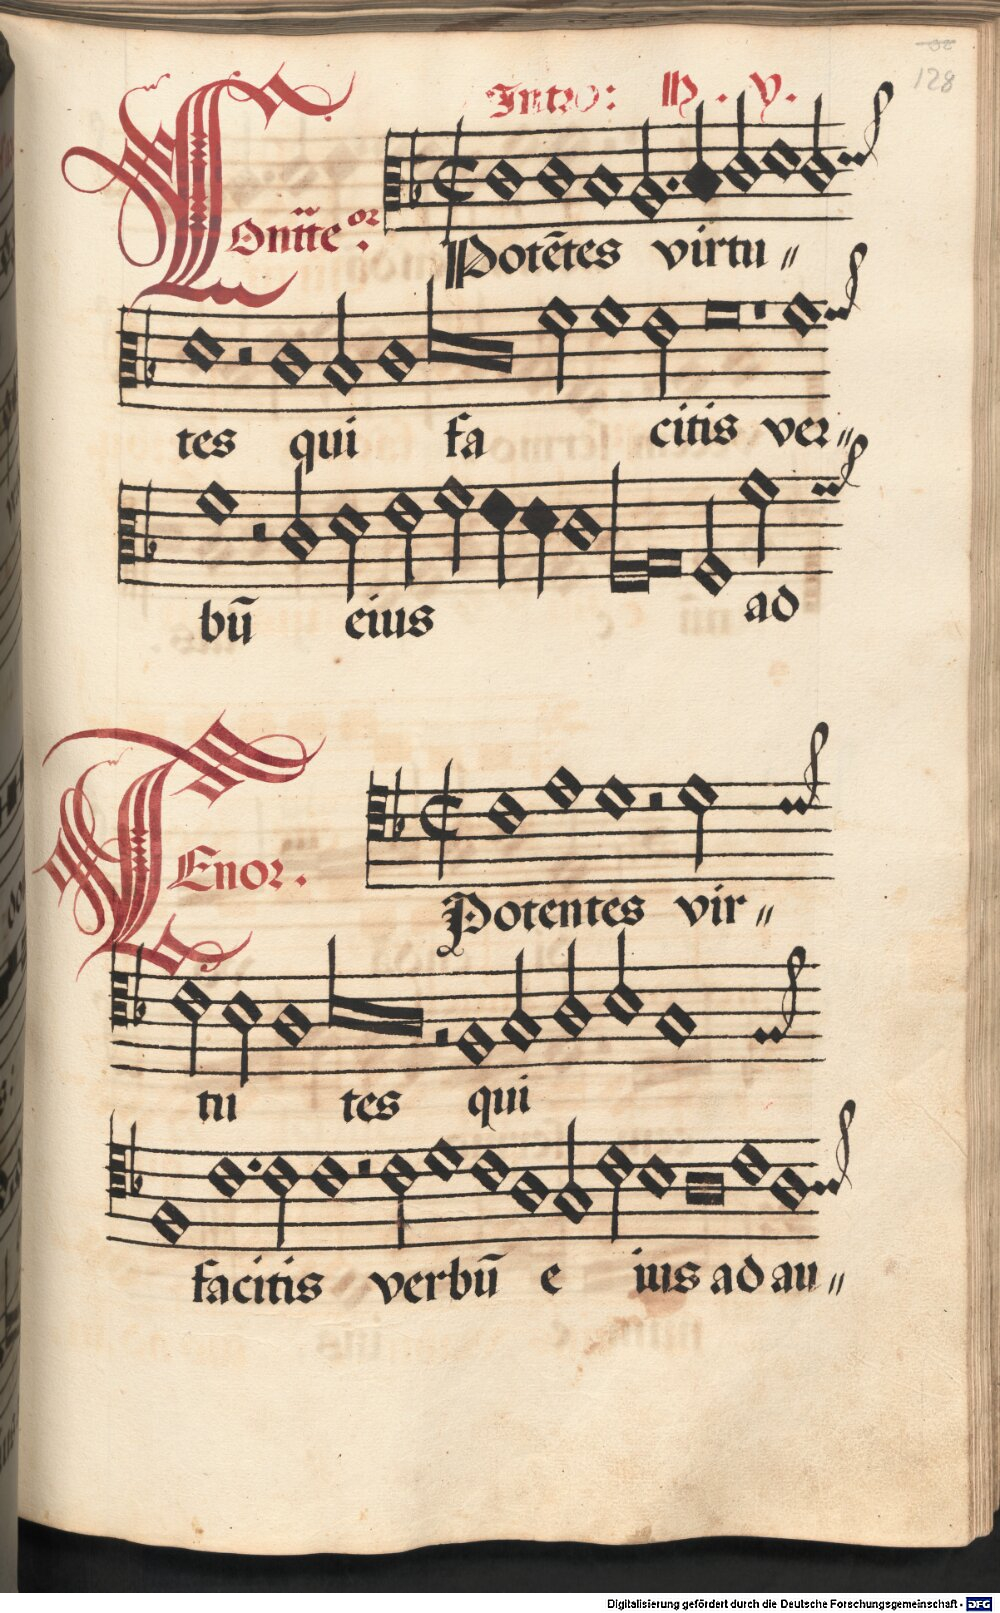 128
Intro:
Potētes virtu〃
tes qui fa citis ver〃
bū eius ad
TEnor.
Potentes vir〃
tu tes qui
facitis verbū e ius ad au〃
Digitalisierung gefördert durch die Deutsche Forschungsgemeinschaft - DFG